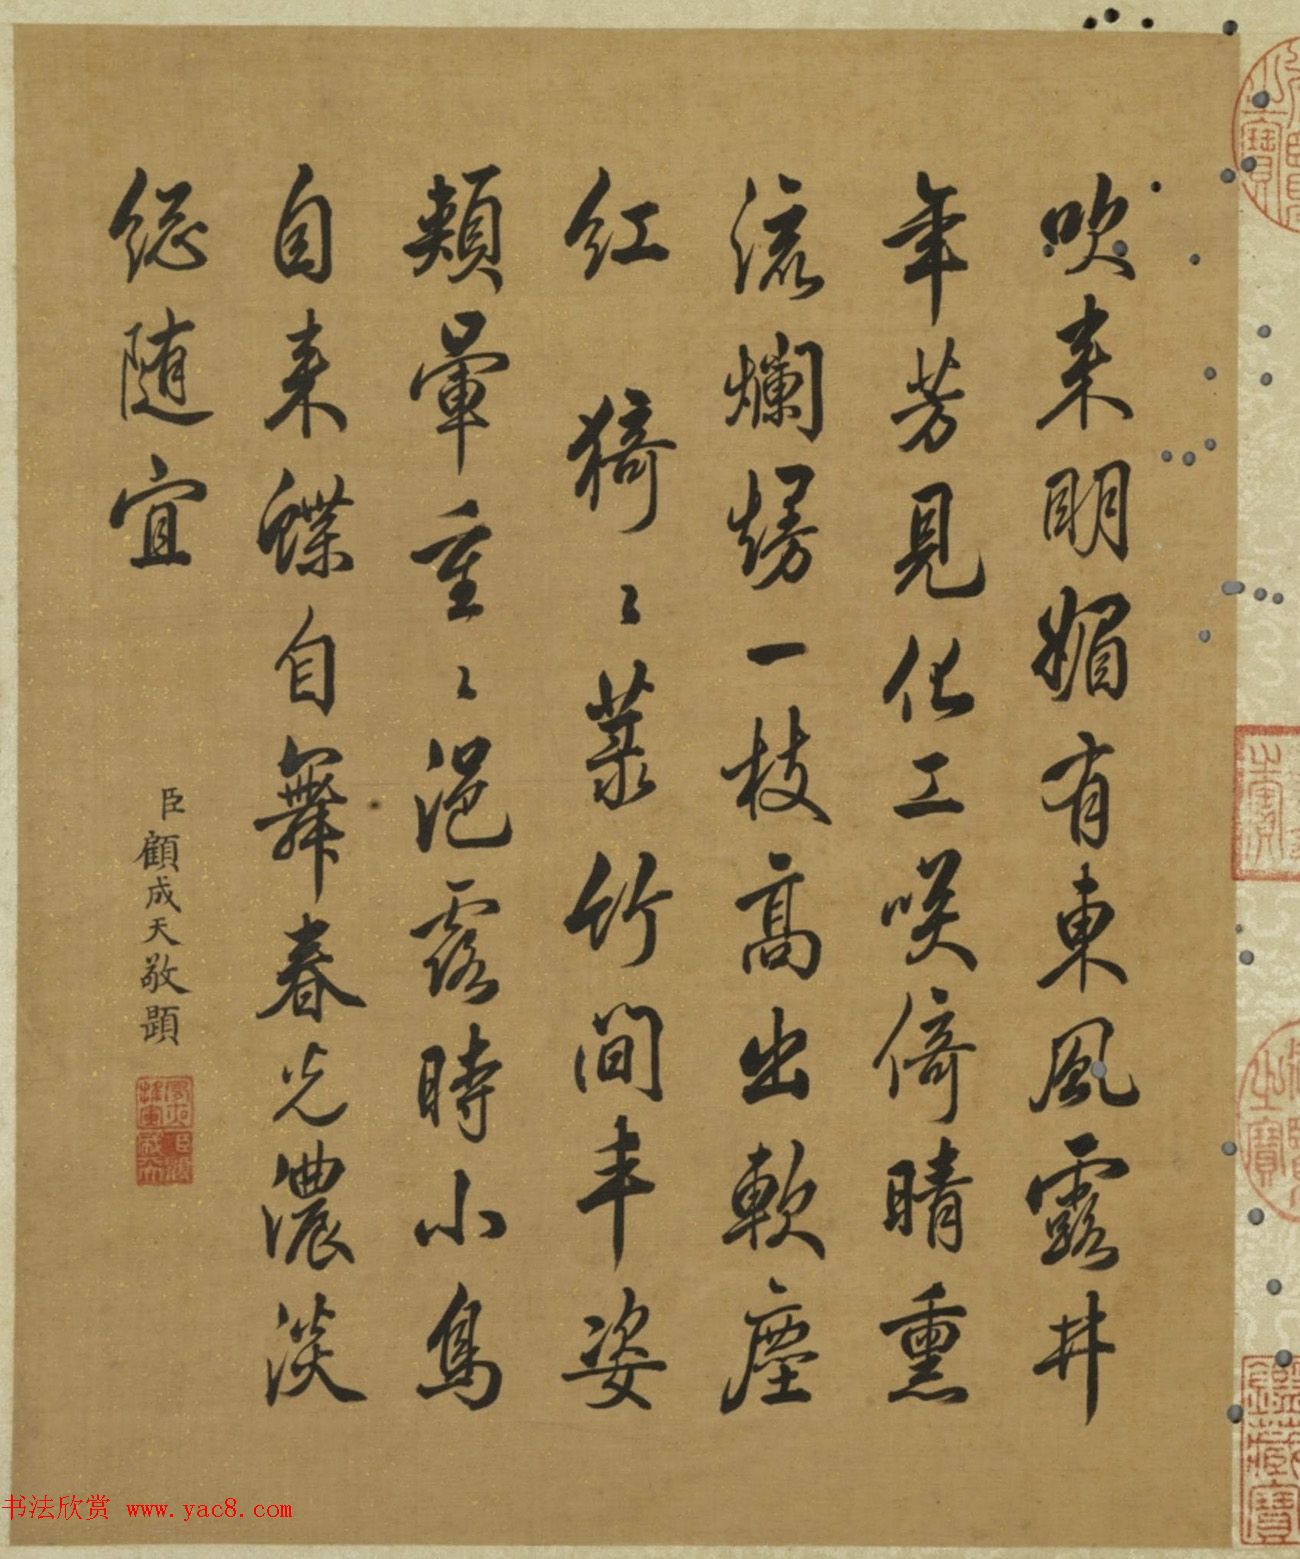 吹来明媚有東風露井
年芳見化工咲倚晴熏
流爛熳一枝高出軟塵
紅 猗〻菉竹間丰姿
頬暈重〻浥露時小鳥
自来蝶自舞春光濃淡
総随宜
臣顧成天敬題
书法欣赏 www.yac8.com